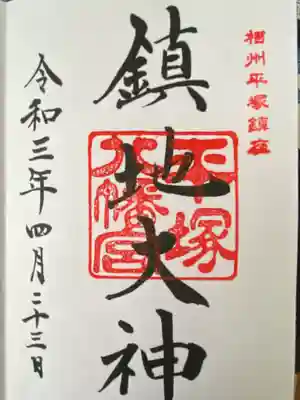 相州平塚鎮座
鎮地大神
平塚八幡宮
令和三年四月二十三日